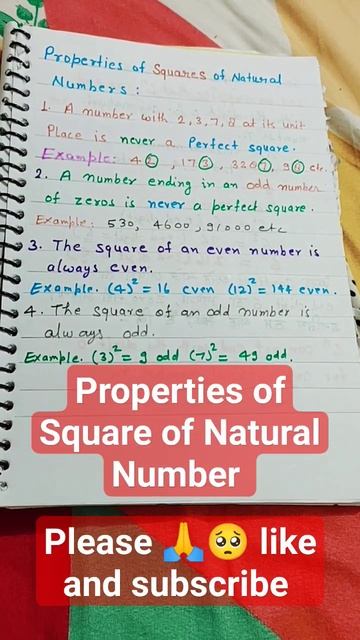 Properties of Squares of Natural
Numbers :
1. A number with 2, 3, 7, 8 at its unit
Place is never a Perfect square.
Example: 42, 173, 3267, 98 etc.
2. A number ending in an odd number
of zeros is never a perfect square.
Example: 530, 4600, 91000 etc
3. The square of an even number is
always even.
Example. (4)² = 16 even (12)² = 144 even.
4. The square of an odd number is
always odd.
Example. (3)² = 9 odd (7)² = 49 odd.
Properties of
Square of Natural
Number
Please 🙏🥺 like
and subscribe